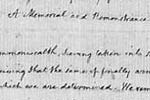 A Memorial and Remonstrance
ommonwealth, having taken into s
uming that the same if finally arm
which we are determined. We rem